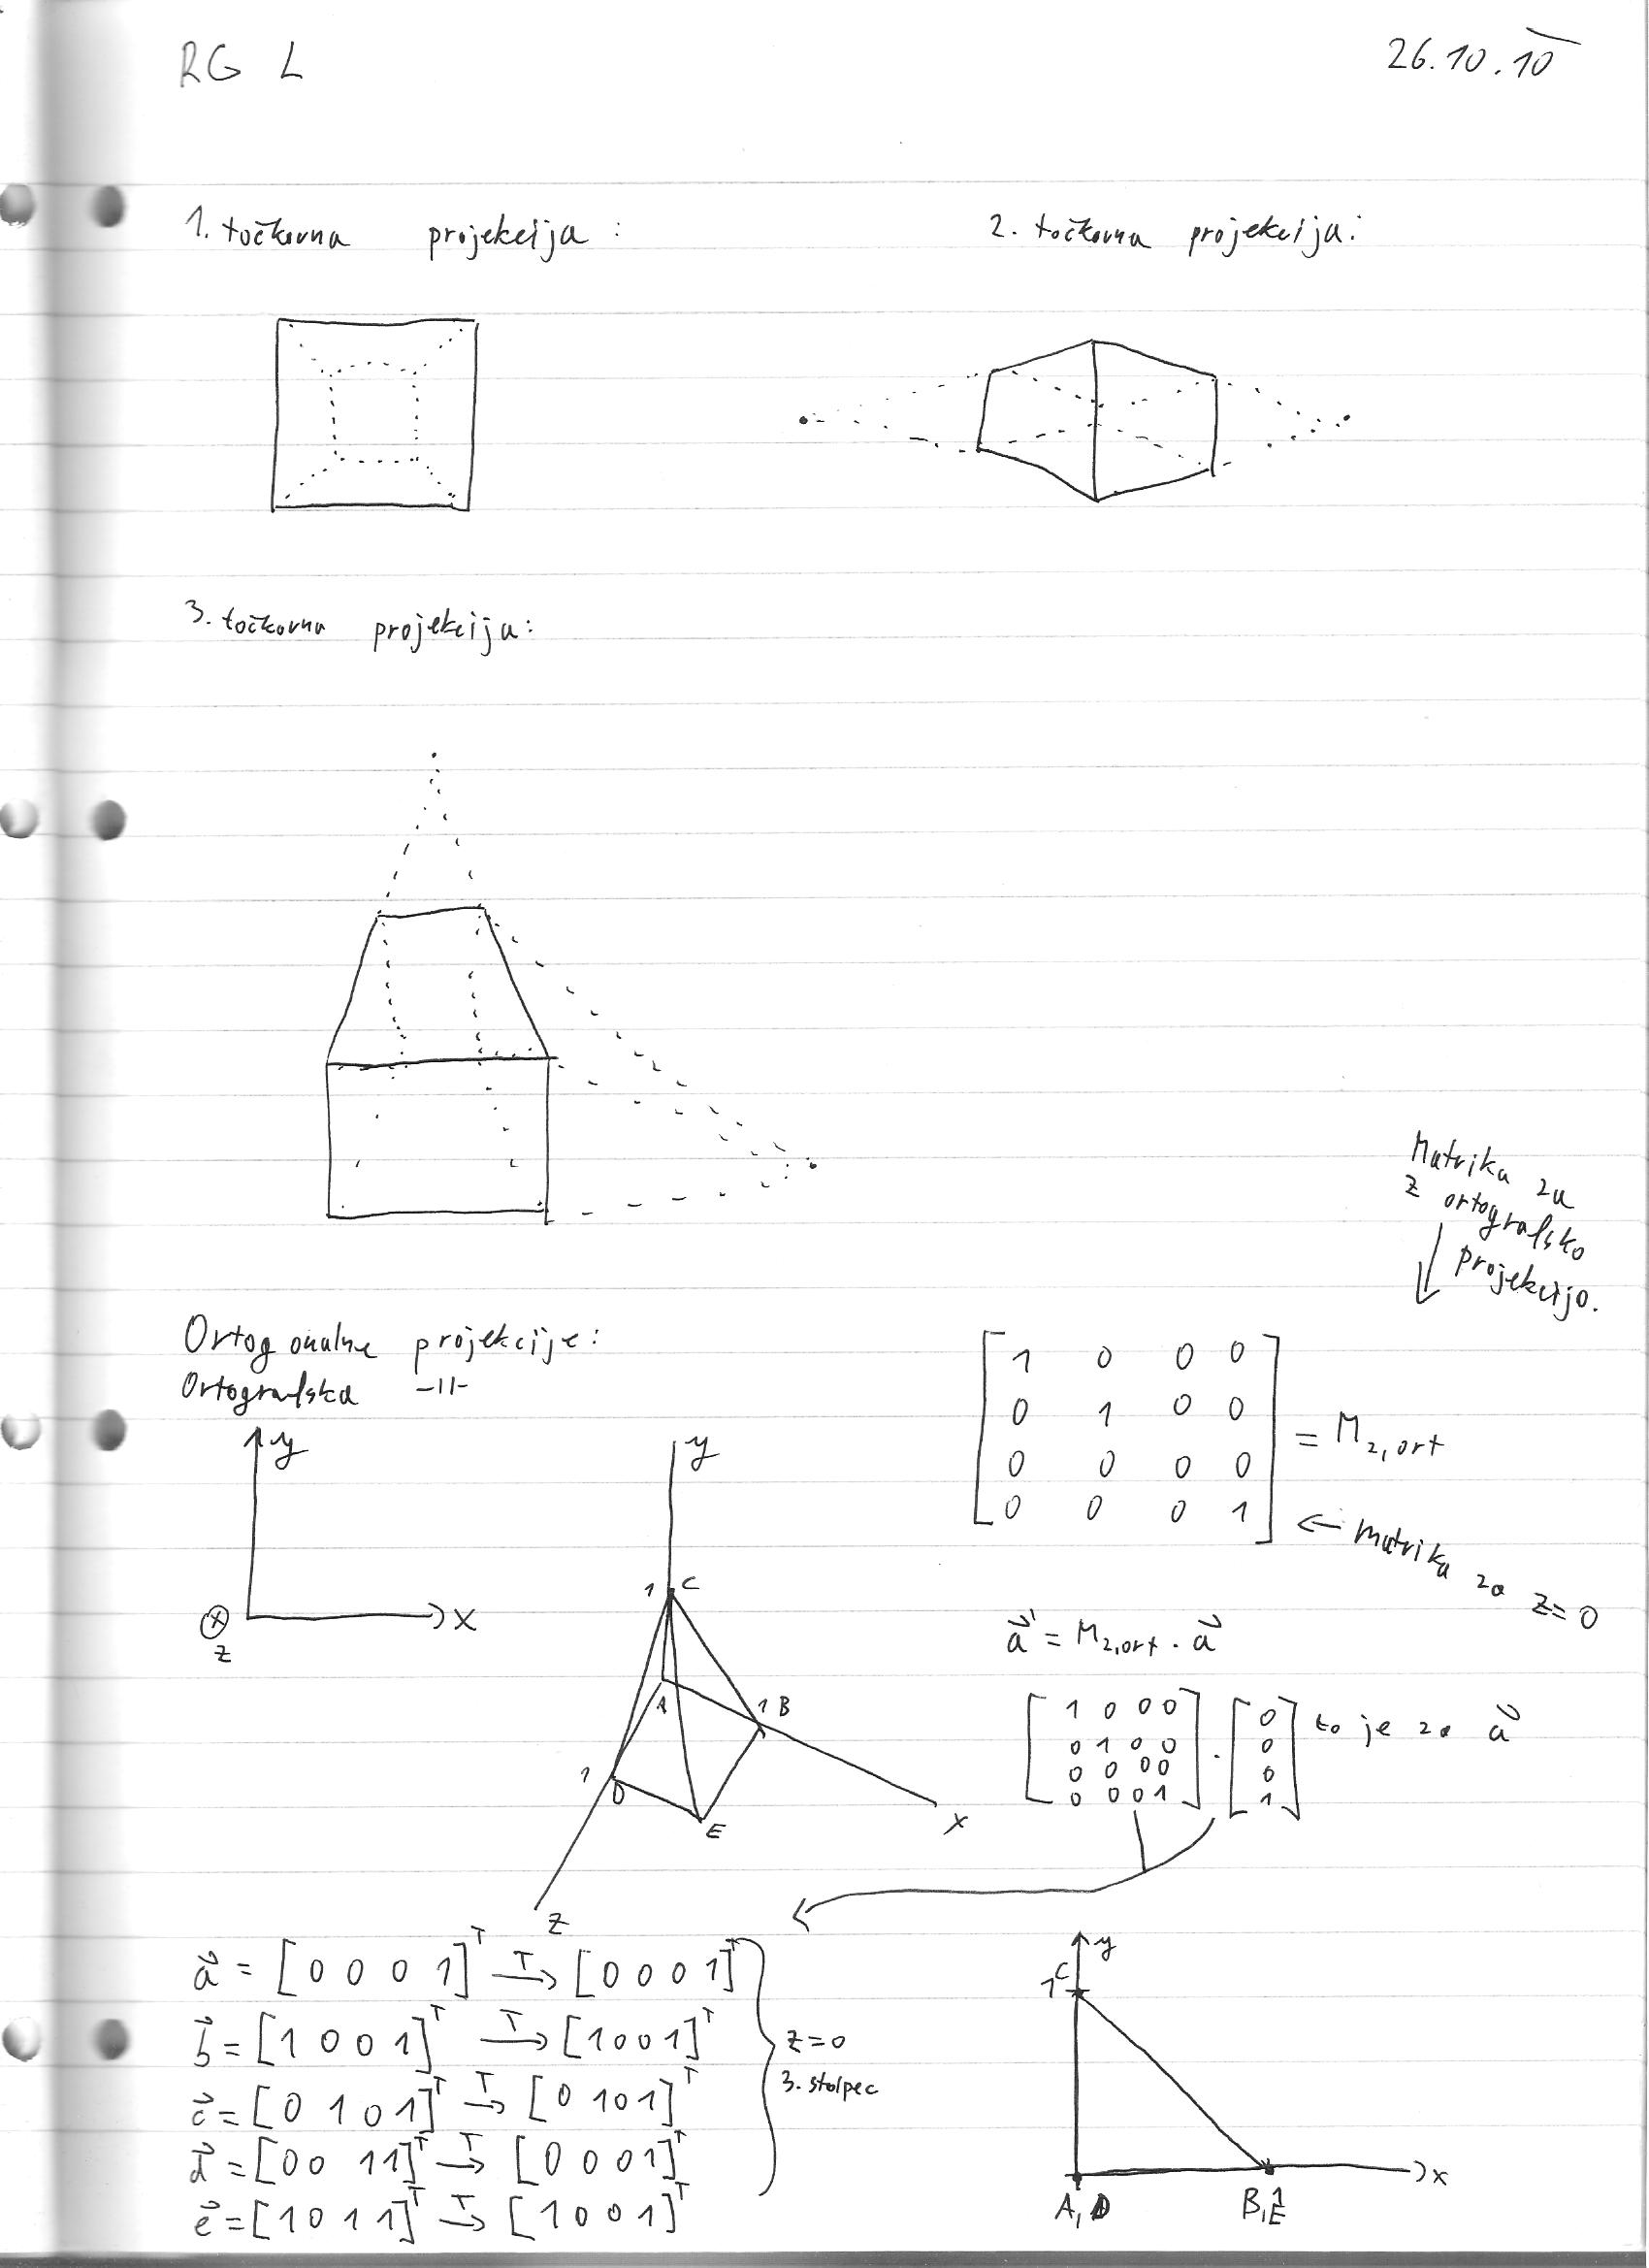 RG L
26.10.10
1. točkovna projekcija:
2. točkovna projekcija:
3. točkovna projekcija:
Matrika za
z ortografsko
projekcijo.
Ortogonalne projekcije:
Ortografska -||-
y
x
z
y
1 C
A
1 B
1
D
E
x
z
[1 0 0 0]
[0 1 0 0]
= Mz,ort
[0 0 0 0]
[0 0 0 1]
← matrika za z=0
a⃗' = Mz,ort · a⃗
[1 0 0 0] [0] to je za a⃗
[0 1 0 0] · [0]
[0 0 0 0] [0]
[0 0 0 1] [1]
a⃗ = [0 0 0 1]ᵀ T→ [0 0 0 1]ᵀ
b⃗ = [1 0 0 1]ᵀ T→ [1 0 0 1]ᵀ
c⃗ = [0 1 0 1]ᵀ T→ [0 1 0 1]ᵀ
d⃗ = [0 0 1 1]ᵀ T→ [0 0 0 1]ᵀ
e⃗ = [1 0 1 1]ᵀ T→ [1 0 0 1]ᵀ
z=0
3. stolpec
y
1 C
x
A, D
B, E
1